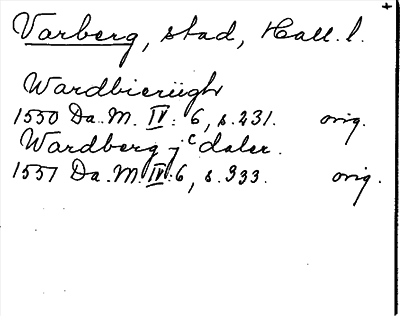 Varberg, stad, Hall. l.
Wardbierügh
1550 Da. M. IV: 6, s. 231. orig.
Wardberg jc daler.
1557 Da. M. IV: 6, s. 333. orig.